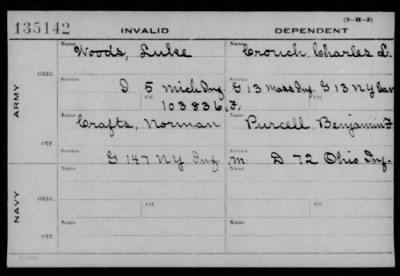 (3-H-3)
135142 INVALID DEPENDENT
Name Woods, Luke Name Crouch, Charles L.
ORIG.
Service Co. Service Co.
D 5 Mich Inf. G 13 Mass Inf. G 13 N Y Cav
103836. F.
ARMY
Name Crafts, Norman Name Purcell, Benjamin F
CTF.
Service Service
G 147 N Y Inf m D 72 Ohio Inf.
Name Name
ORIG.
Co. Co.
NAVY
Name Name
CTF.